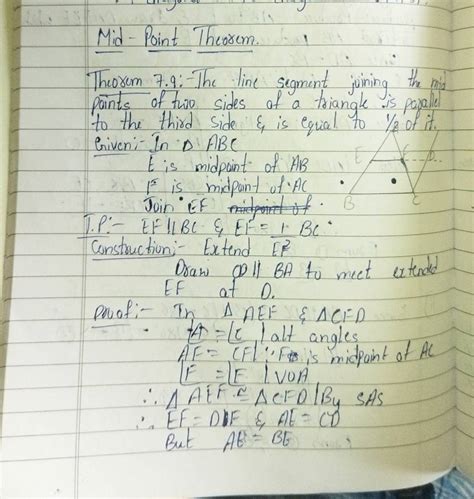 Mid-Point Theorem.
Theorem 7.9:- The line segment joining the mid
points of two sides of a triangle is parallel
to the third side & is equal to 1/2 of it.
Given:- In Δ ABC
E is midpoint of AB
F is midpoint of AC
Join EF midpoint of
T.P:- EF || BC & EF = 1/2 BC.
Construction:- Extend EF
Draw CD || BA to meet extended
EF at D.
Proof:- In Δ AEF & Δ CFD
∠A = ∠C | alt angles
AF = CF | ∵ F is midpoint of AC
∠F = ∠F | VOA
∴ Δ AEF ≅ Δ CFD | By SAS
∴ EF = DF & AE = CD
But AE = BE
E
F
D
B
C